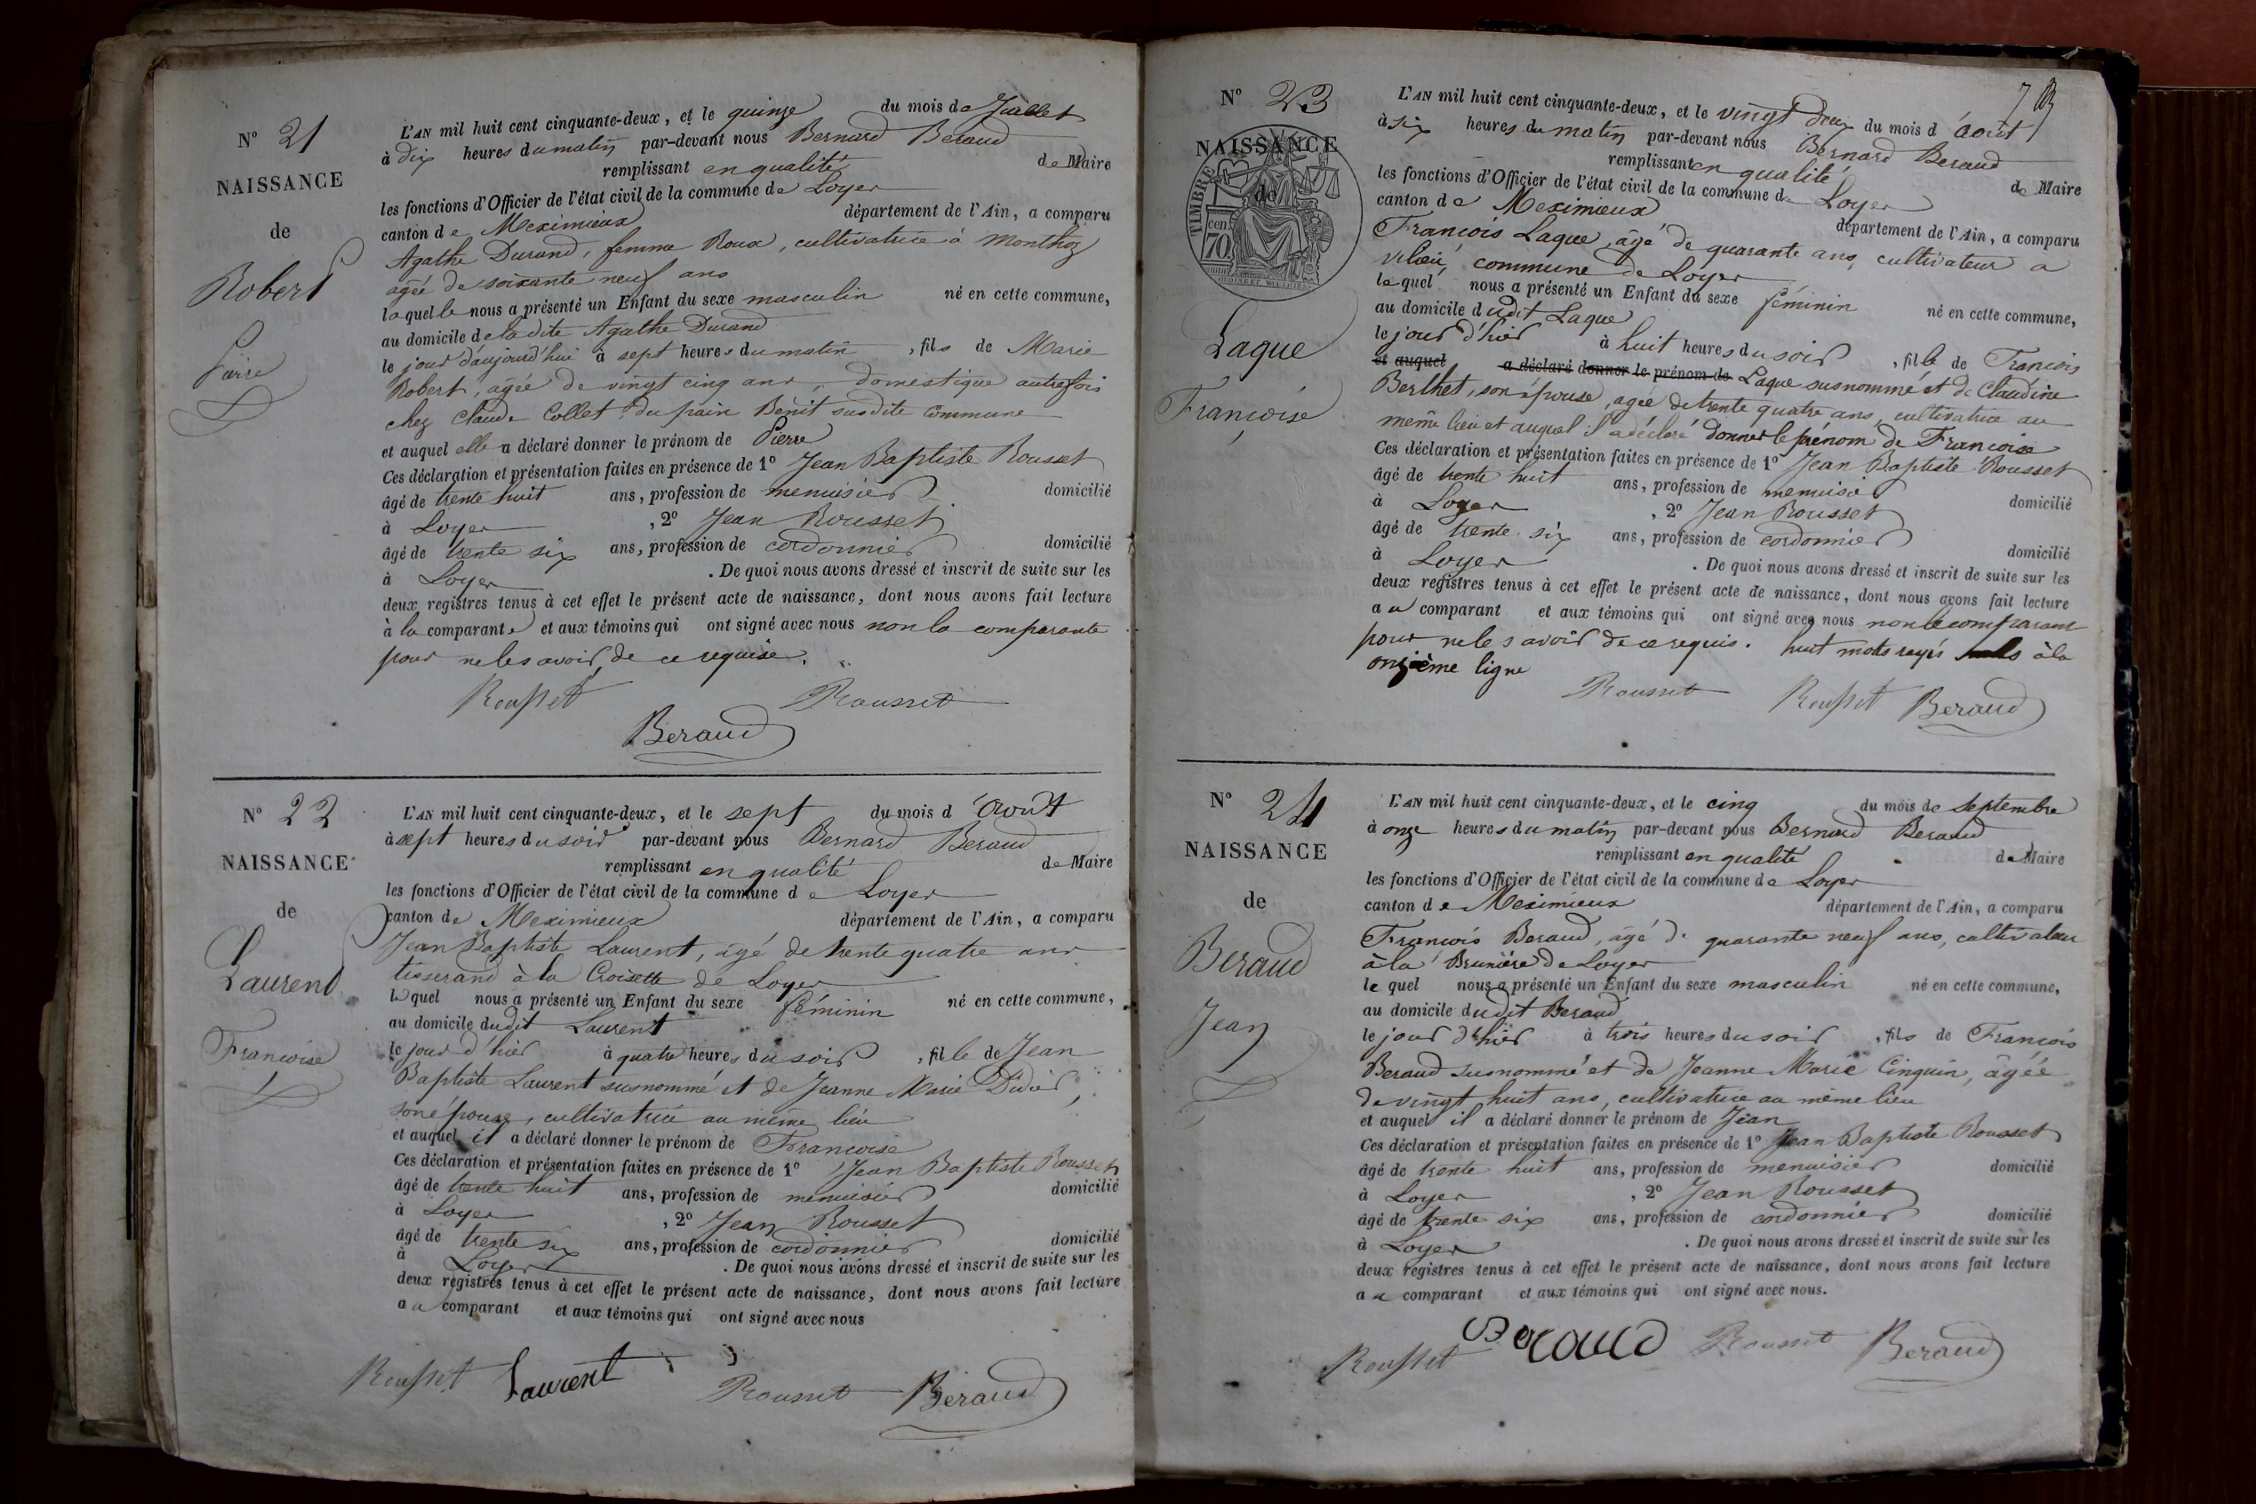 N° 21
NAISSANCE
de
Robert
Pierre
L'AN mil huit cent cinquante-deux, et le quinze du mois de Juillet
à dix heures du matin par-devant nous Bernard Beraud
remplissant en qualité de Maire
les fonctions d'Officier de l'état civil de la commune de Loyer
canton de Meximieux département de l'Ain, a comparu
Agathe Durand, femme Roux, cultivatrice à Monthoz
agée de soixante neuf ans
laquelle nous a présenté un Enfant du sexe masculin né en cette commune,
au domicile de ladite Agathe Durand
le jour d'aujourd'hui à sept heures du matin, fils de Marie
Robert, agée de vingt cinq ans, domestique autrefois
chez Claude Collet du pain Benit susdite commune
et auquel elle a déclaré donner le prénom de Pierre
Ces déclaration et présentation faites en présence de 1° Jean Baptiste Rousset
âgé de trente huit ans, profession de menuisier domicilié
à Loyer, 2° Jean Rousset
âgé de trente six ans, profession de cordonnier domicilié
à Loyer. De quoi nous avons dressé et inscrit de suite sur les
deux registres tenus à cet effet le présent acte de naissance, dont nous avons fait lecture
à la comparante et aux témoins qui ont signé avec nous non la comparante
pour ne le savoir de ce requise.
Rousset Rousset
Beraud
N° 22
NAISSANCE
de
Laurent
Francoise
L'AN mil huit cent cinquante-deux, et le sept du mois d'Août
à sept heures du soir par-devant nous Bernard Beraud
remplissant en qualité de Maire
les fonctions d'Officier de l'état civil de la commune de Loyer
canton de Meximieux département de l'Ain, a comparu
Jean Baptiste Laurent, âgé de trente quatre ans
tisserand à la Croisette de Loyer
lequel nous a présenté un Enfant du sexe féminin né en cette commune,
au domicile dudit Laurent
le jour d'hier à quatre heures du soir, fille de Jean
Baptiste Laurent susnommé et de Jeanne Marie Didier,
son épouse, cultivatrice au même lieu
et auquel il a déclaré donner le prénom de Francoise
Ces déclaration et présentation faites en présence de 1° Jean Baptiste Rousset
âgé de trente huit ans, profession de menuisier domicilié
à Loyer, 2° Jean Rousset
âgé de trente six ans, profession de cordonnier domicilié
à Loyer. De quoi nous avons dressé et inscrit de suite sur les
deux registres tenus à cet effet le présent acte de naissance, dont nous avons fait lecture
au comparant et aux témoins qui ont signé avec nous
Rousset Laurent Rousset Beraud
N° 23
NAISSANCE
de
TIMBRE
cen.
70
Laque
Françoise
L'AN mil huit cent cinquante-deux, et le vingt deux du mois d'août
à six heures du matin par-devant nous Bernard Beraud
remplissant en qualité de Maire
les fonctions d'Officier de l'état civil de la commune de Loyer
canton de Meximieux département de l'Ain, a comparu
François Laque, âgé de quarante ans, cultivateur a
commune de Loyer
lequel nous a présenté un Enfant du sexe féminin né en cette commune,
au domicile dudit Laque
le jour d'hier à huit heures du soir, fille de Francois
et auquel a déclaré donner le prénom de Laque susnommé et de Claudine
Berthet, son épouse, agée de trente quatre ans, cultivatrice au
même lieu et auquel il a déclaré donner le prénom de Francoise
Ces déclaration et présentation faites en présence de 1° Jean Baptiste Rousset
âgé de trente huit ans, profession de menuisier domicilié
à Loyer, 2° Jean Rousset
âgé de trente six ans, profession de cordonnier domicilié
à Loyer. De quoi nous avons dressé et inscrit de suite sur les
deux registres tenus à cet effet le présent acte de naissance, dont nous avons fait lecture
au comparant et aux témoins qui ont signé avec nous non le comparant
pour ne le savoir de ce requis. huit mots rayés à la
onzième ligne
Rousset Rousset Beraud
N° 24
NAISSANCE
de
Beraud
Jean
L'AN mil huit cent cinquante-deux, et le cinq du mois de septembre
à onze heures du matin par-devant nous Bernard Beraud
remplissant en qualité de Maire
les fonctions d'Officier de l'état civil de la commune de Loyer
canton de Meximieux département de l'Ain, a comparu
François Beraud, âgé de quarante neuf ans, cultivateur
à la Brunière de Loyer
lequel nous a présenté un Enfant du sexe masculin né en cette commune,
au domicile dudit Beraud
le jour d'hier à trois heures du soir, fils de François
Beraud susnommé et de Jeanne Marie Cinquin, âgée
de vingt huit ans, cultivatrice au même lieu
et auquel il a déclaré donner le prénom de Jean
Ces déclaration et présentation faites en présence de 1° Jean Baptiste Rousset
âgé de trente huit ans, profession de menuisier domicilié
à Loyer, 2° Jean Rousset
âgé de trente six ans, profession de cordonnier domicilié
à Loyer. De quoi nous avons dressé et inscrit de suite sur les
deux registres tenus à cet effet le présent acte de naissance, dont nous avons fait lecture
au comparant et aux témoins qui ont signé avec nous.
Rousset Beraud Rousset Beraud